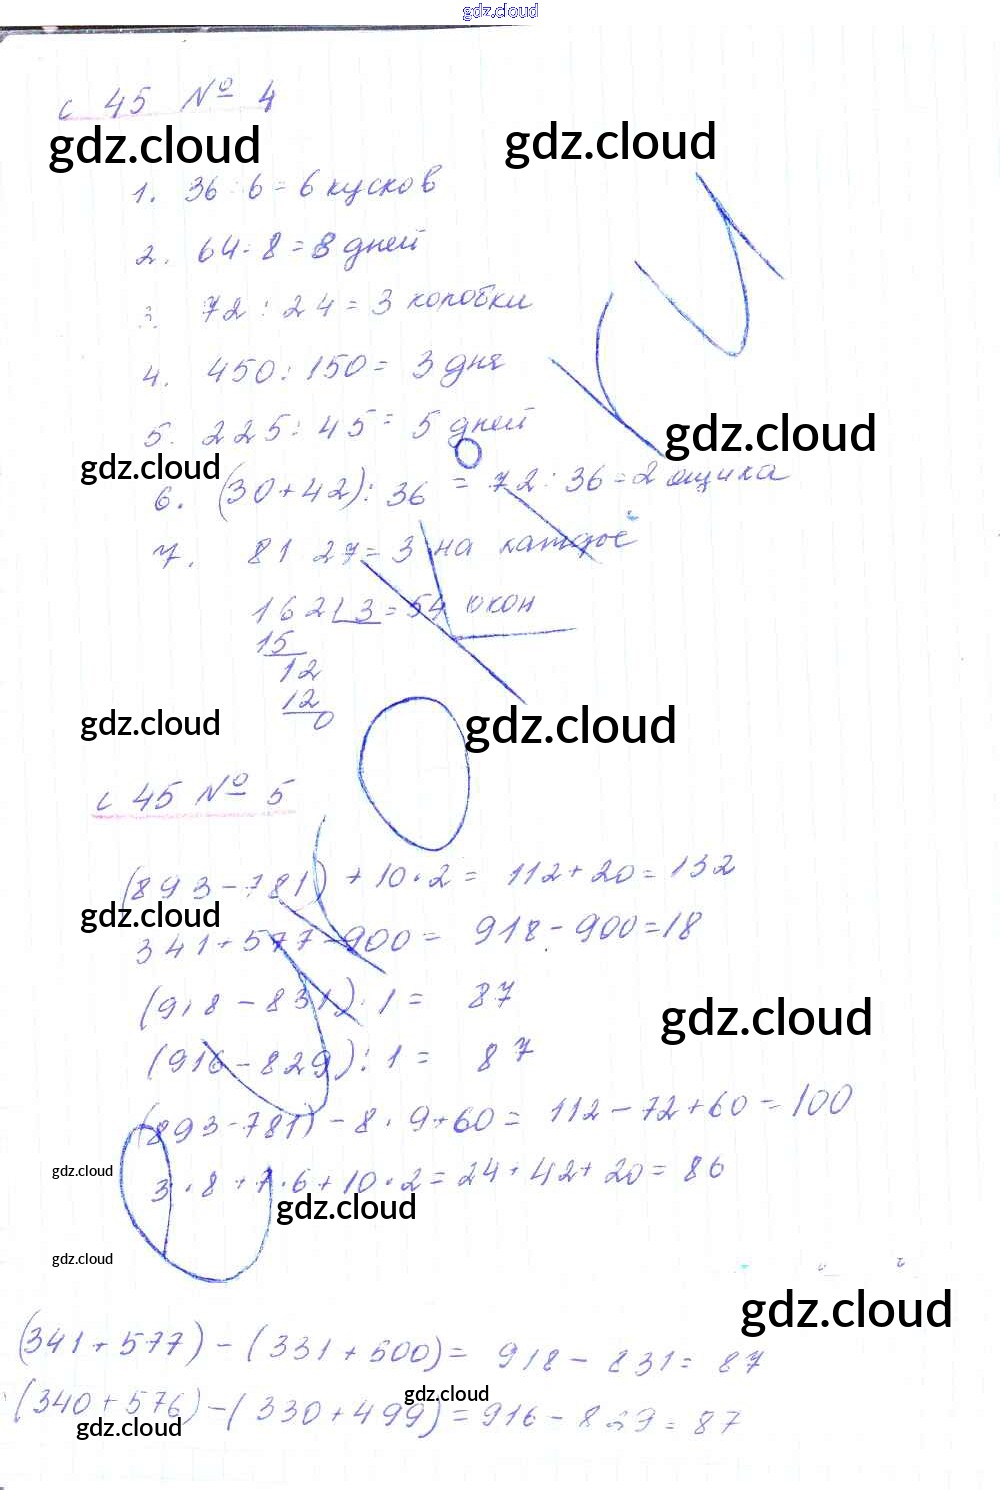 gdz.cloud
с 45 № 4
gdz.cloud gdz.cloud
1. 36 : 6 = 6 кусков
2. 64 : 8 = 8 дней
3. 72 : 24 = 3 коробки
4. 450 : 150 = 3 дня
5. 225 : 45 = 5 дней
gdz.cloud
gdz.cloud
6. (30 + 42) : 36 = 72 : 36 = 2 ящика
7. 81 27 = 3 на каждое
162 3 = 54 окон
15
12
12
0
gdz.cloud gdz.cloud
с 45 № 5
(893 - 781) + 10 · 2 = 112 + 20 = 132
gdz.cloud
341 + 577 - 900 = 918 - 900 = 18
(918 - 831) : 1 = 87
gdz.cloud
(916 - 829) : 1 = 87
(893 - 781) - 8 · 9 + 60 = 112 - 72 + 60 = 100
gdz.cloud
3 · 8 + 7 · 6 + 10 · 2 = 24 + 42 + 20 = 86
gdz.cloud
gdz.cloud
gdz.cloud
(341 + 577) - (331 + 500) = 918 - 831 = 87
gdz.cloud
(340 + 576) - (330 + 499) = 916 - 829 = 87
gdz.cloud